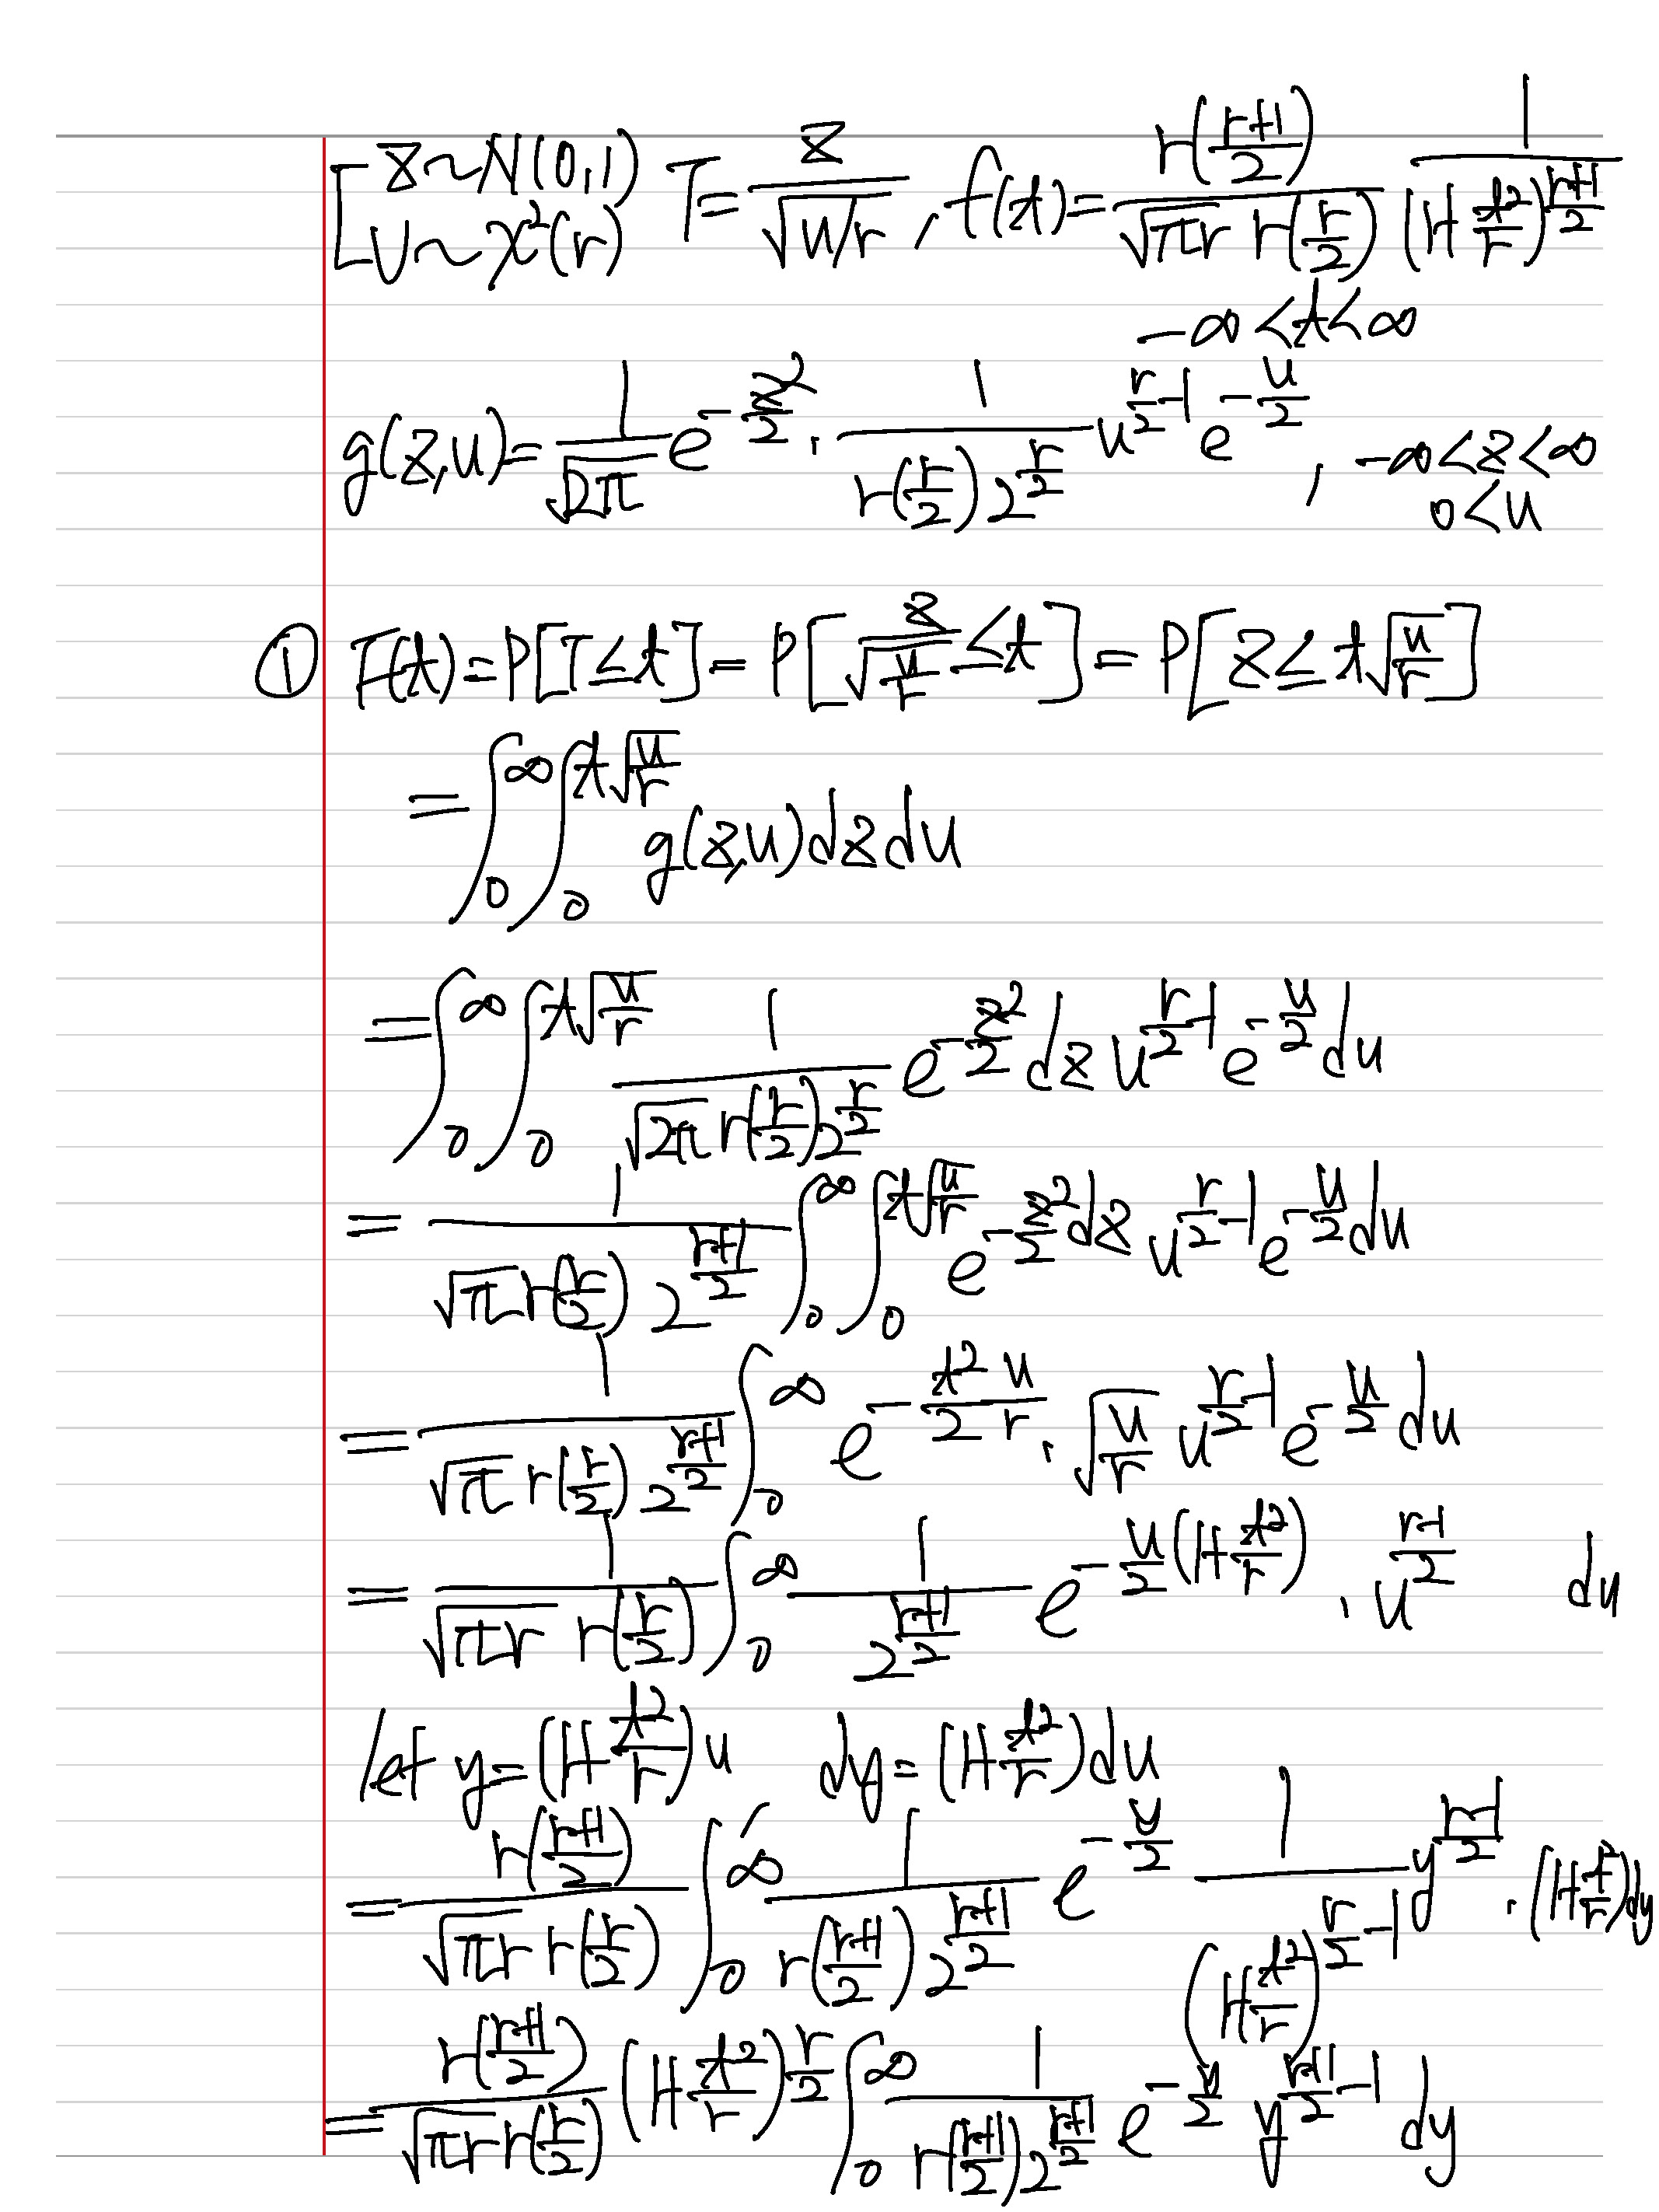 [Z~N(0,1) U~χ²(r) T=Z/√(U/r), f(t)=Γ((r+1)/2)/(√(πr) Γ(r/2)) · 1/(1+t²/r)^((r+1)/2)
-∞<t<∞
g(z,u)=1/√(2π) e^(-z²/2) · 1/(Γ(r/2) 2^(r/2)) u^(r/2-1) e^(-u/2), -∞<z<∞
0<u
① F(t)=P[T≤t]=P[Z/√(u/r)≤t]=P[Z≤t√(u/r)]
=∫_0^∞ ∫_0^(t√(u/r)) g(z,u)dzdu
=∫_0^∞ ∫_0^(t√(u/r)) 1/(√(2π) Γ(r/2) 2^(r/2)) e^(-z²/2) dz u^(r/2-1) e^(-u/2) du
=1/(√π Γ(r/2) 2^((r+1)/2)) ∫_0^∞ ∫_0^(t√(u/r)) e^(-z²/2) dz u^(r/2-1) e^(-u/2) du
=1/(√π Γ(r/2) 2^((r+1)/2)) ∫_0^∞ e^(-(t²/2)(u/r)) · √(u/r) u^(r/2-1) e^(-u/2) du
=1/(√(πr) Γ(r/2)) ∫_0^∞ 1/2^((r+1)/2) e^(-(u/2)(1+t²/r)) · u^((r-1)/2) du
let y=(1+t²/r)u dy=(1+t²/r)du
=Γ((r+1)/2)/(√(πr) Γ(r/2)) ∫_0^∞ 1/(Γ((r+1)/2) 2^((r+1)/2)) e^(-y/2) 1/(1+t²/r)^(r/2-1) y^((r-1)/2) · (1+t²/r)dy
=Γ((r+1)/2)/(√(πr) Γ(r/2)) (1+t²/r)^(r/2) ∫_0^∞ 1/(Γ((r+1)/2) 2^((r+1)/2)) e^(-y/2) y^((r+1)/2-1) dy